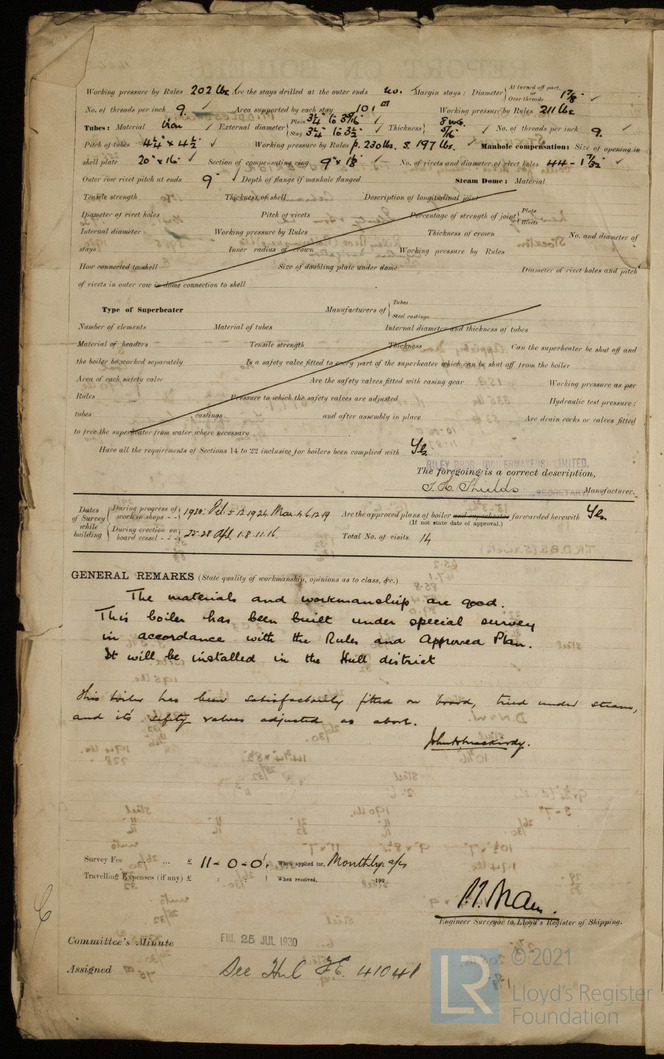 Working pressure by Rules 202 lbs Are the stays drilled at the outer ends no. Margin stays: Diameter { At turned off part, or Over threads 1 7/8 "
No. of threads per inch 9. Area supported by each stay 101 Working pressure by Rules 211 lbs
Tubes: Material Iron External diameter { Plain 3 1/4 Stay 3 1/4 Thickness { 8 w.g. 5/16 No. of threads per inch 9.
Pitch of tubes 4 1/4" x 4 1/2" Working pressure by Rules P. 230 lbs, S. 197 lbs. Manhole compensation: Size of opening in
shell plate 20" x 16" Section of compensating ring No. of rivets and diameter of rivet holes 44 -
Outer row rivet pitch at ends 9" Depth of flange if manhole flanged Steam Dome: Material
Tensile strength Thickness of shell Description of longitudinal joint
Diameter of rivet holes Pitch of rivets Percentage of strength of joint { Plate Rivets
Internal diameter Working pressure by Rules Thickness of crown No. and diameter of
stays Inner radius of crown Working pressure by Rules
How connected to shell Size of doubling plate under dome Diameter of rivet holes and pitch
of rivets in outer row in dome connection to shell
Type of Superheater Manufacturers of { Tubes Steel castings
Number of elements Material of tubes Internal diameter and thickness of tubes
Material of headers Tensile strength Thickness Can the superheater be shut off and
the boiler be worked separately Is a safety valve fitted to every part of the superheater which can be shut off from the boiler
Area of each safety valve Are the safety valves fitted with easing gear Working pressure as per
Rules Pressure to which the safety valves are adjusted Hydraulic test pressure:
tubes castings and after assembly in place Are drain cocks or valves fitted
to free the superheater from water where necessary
Have all the requirements of Sections 14 to 22 inclusive for boilers been complied with Yes
RILEY BROS. (BOILERMAKERS) LIMITED.
The foregoing is a correct description,
SECRETARY Manufacturer.
Dates of Survey while building { During progress of work in shops - - 1930: Feb 5. 12. 19. 24. Mar. 4. 6. 12. 19
During erection on board vessel - - - 25. 28 Apl. 1. 8. 11. 16.
Are the approved plans of boiler and superheater forwarded herewith Yes
(If not state date of approval.)
Total No. of visits 14
GENERAL REMARKS (State quality of workmanship, opinions as to class, &c.)
The materials and workmanship are good.
This boiler has been built under special survey
in accordance with the Rules and Approved Plan.
It will be installed in the Hull district
This boiler has been satisfactorily fitted on board, tried under steam,
and its safety valves adjusted as above.
Survey Fee ... ... £ 11 - 0 - 0 : When applied for, Monthly a/c
Travelling Expenses (if any) £ : : When received, 192
Engineer Surveyor to Lloyd's Register of Shipping.
Committee's Minute FRI. 25 JUL 1930
Assigned See Hul F.E. 41041
© 2021
LR Lloyd's Register
Foundation